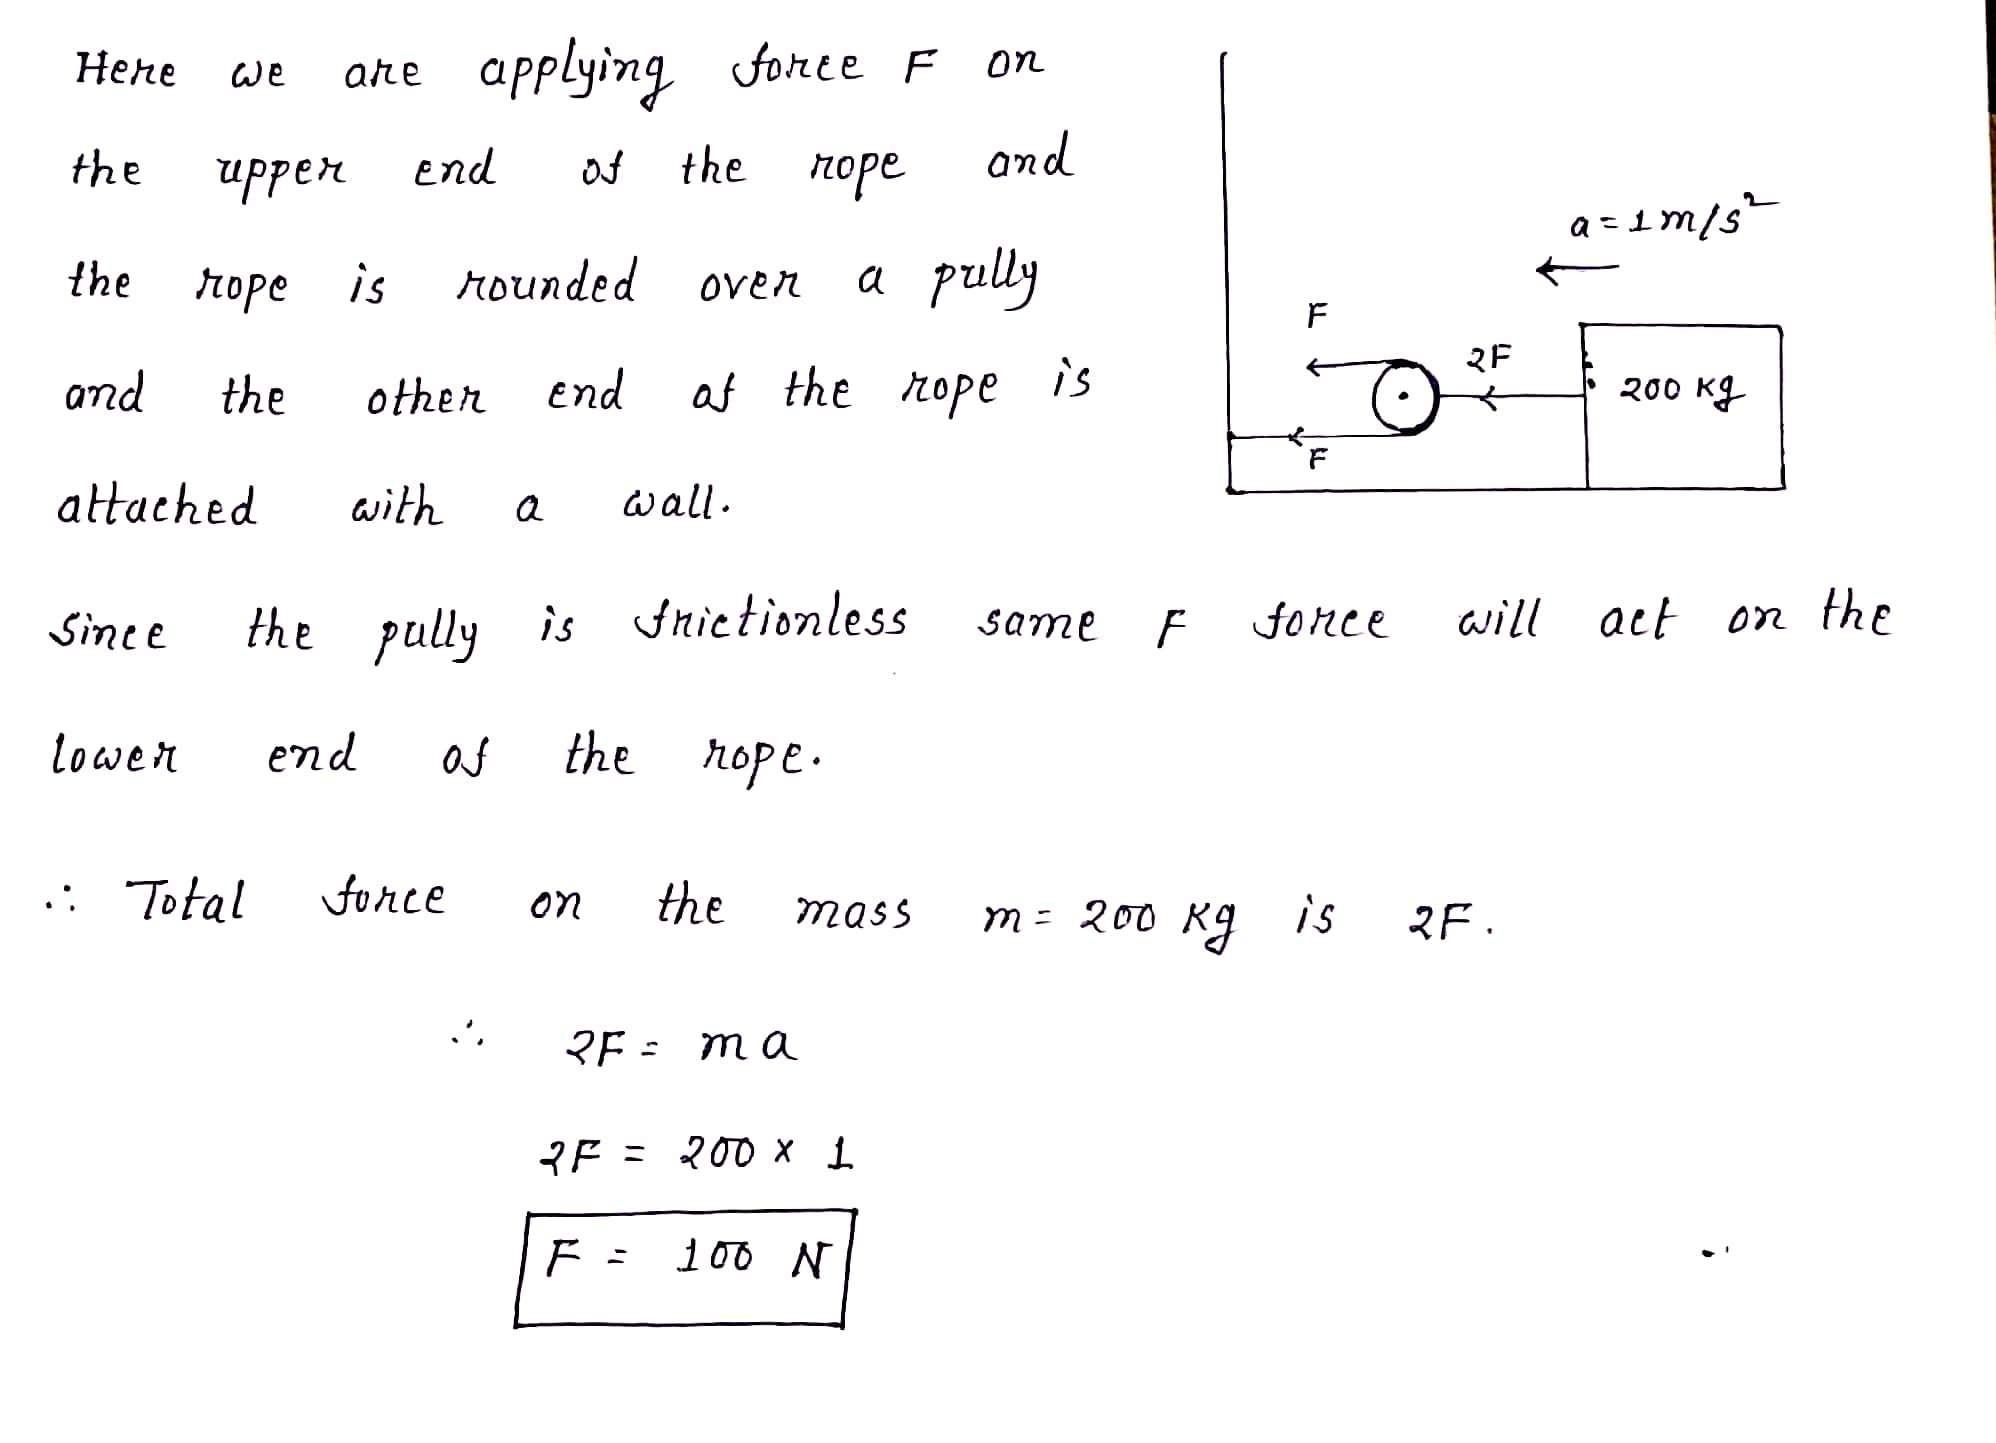 Here we are applying force F on
the upper end of the rope and
the rope is rounded over a pully
and the other end of the rope is
attached with a wall.
a = 1 m/s²
F
2F
200 Kg
F
Since the pully is frictionless same F force will act on the
lower end of the rope.
∴ Total force on the mass m = 200 Kg is 2F.
∴ 2F = ma
2F = 200 x 1
F = 100 N